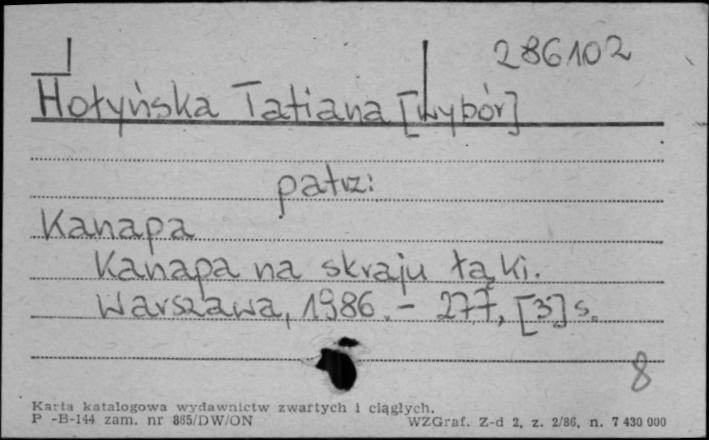 286102
Hołyńska Tatiana [Wybór]
patrz:
Kanapa
Kanapa na skraju łąki.
Warszawa, 1986. - 277, [3] s.
8
Karta katalogowa wydawnictw zwartych i ciągłych.
P -B-144 zam. nr 865/DW/ON WZGraf. Z-d 2, z. 2/86, n. 7 430 000